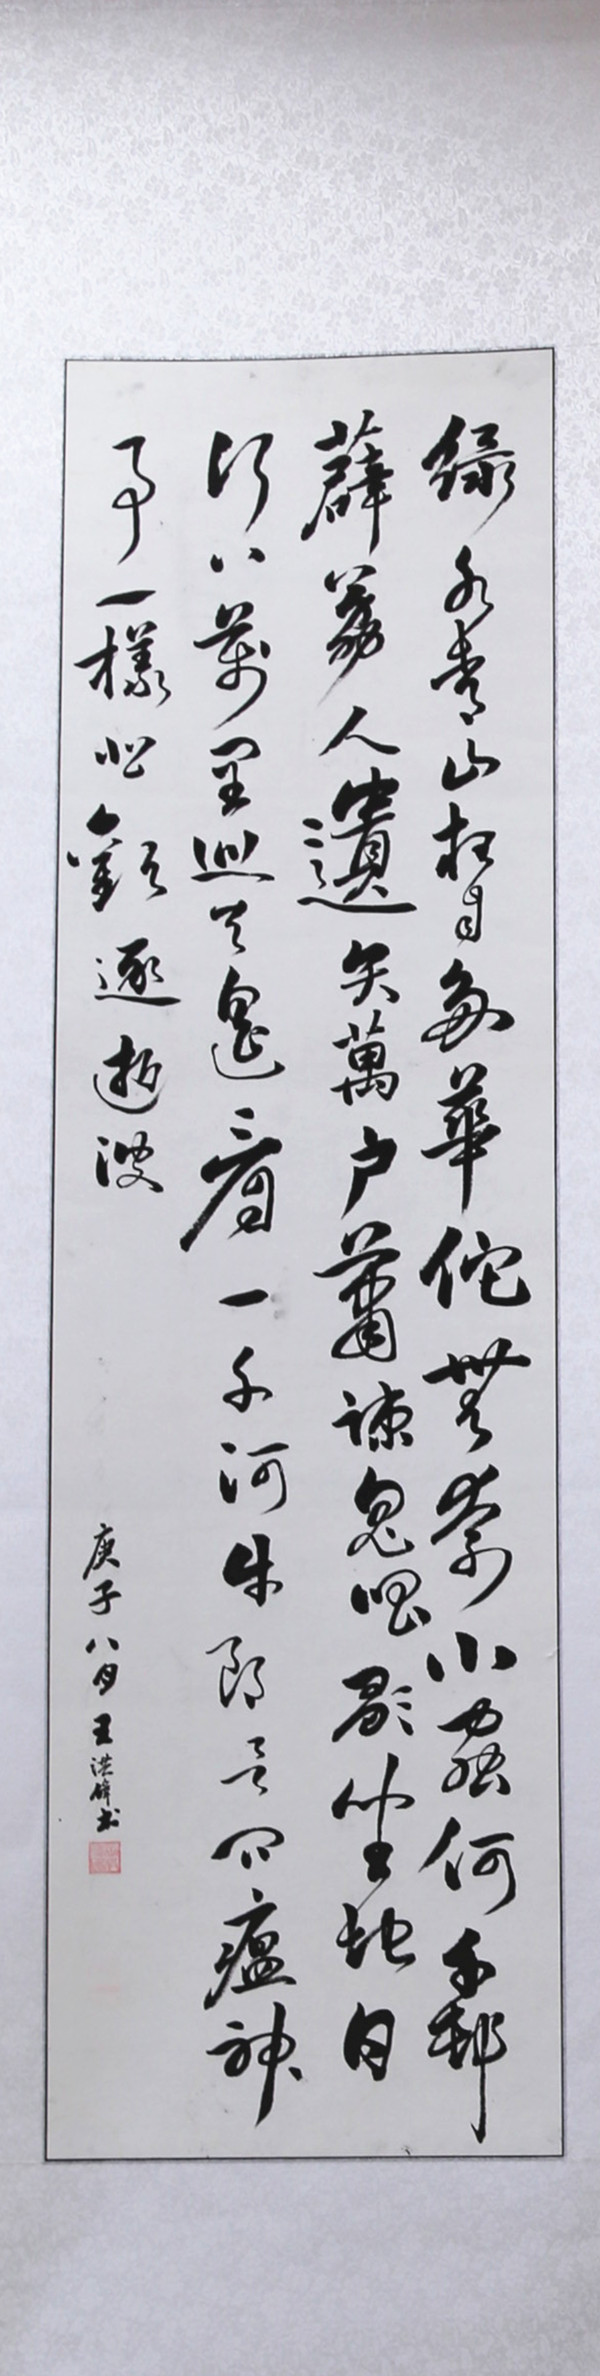 绿水青山枉自多華佗無奈小蟲何千邨
薜荔人遺矢萬户蕭疎鬼唱歌坐地日
行八萬里巡天遥看一千河牛郎欲问瘟神
事一樣悲歡逐逝波
庚子八月王洪书